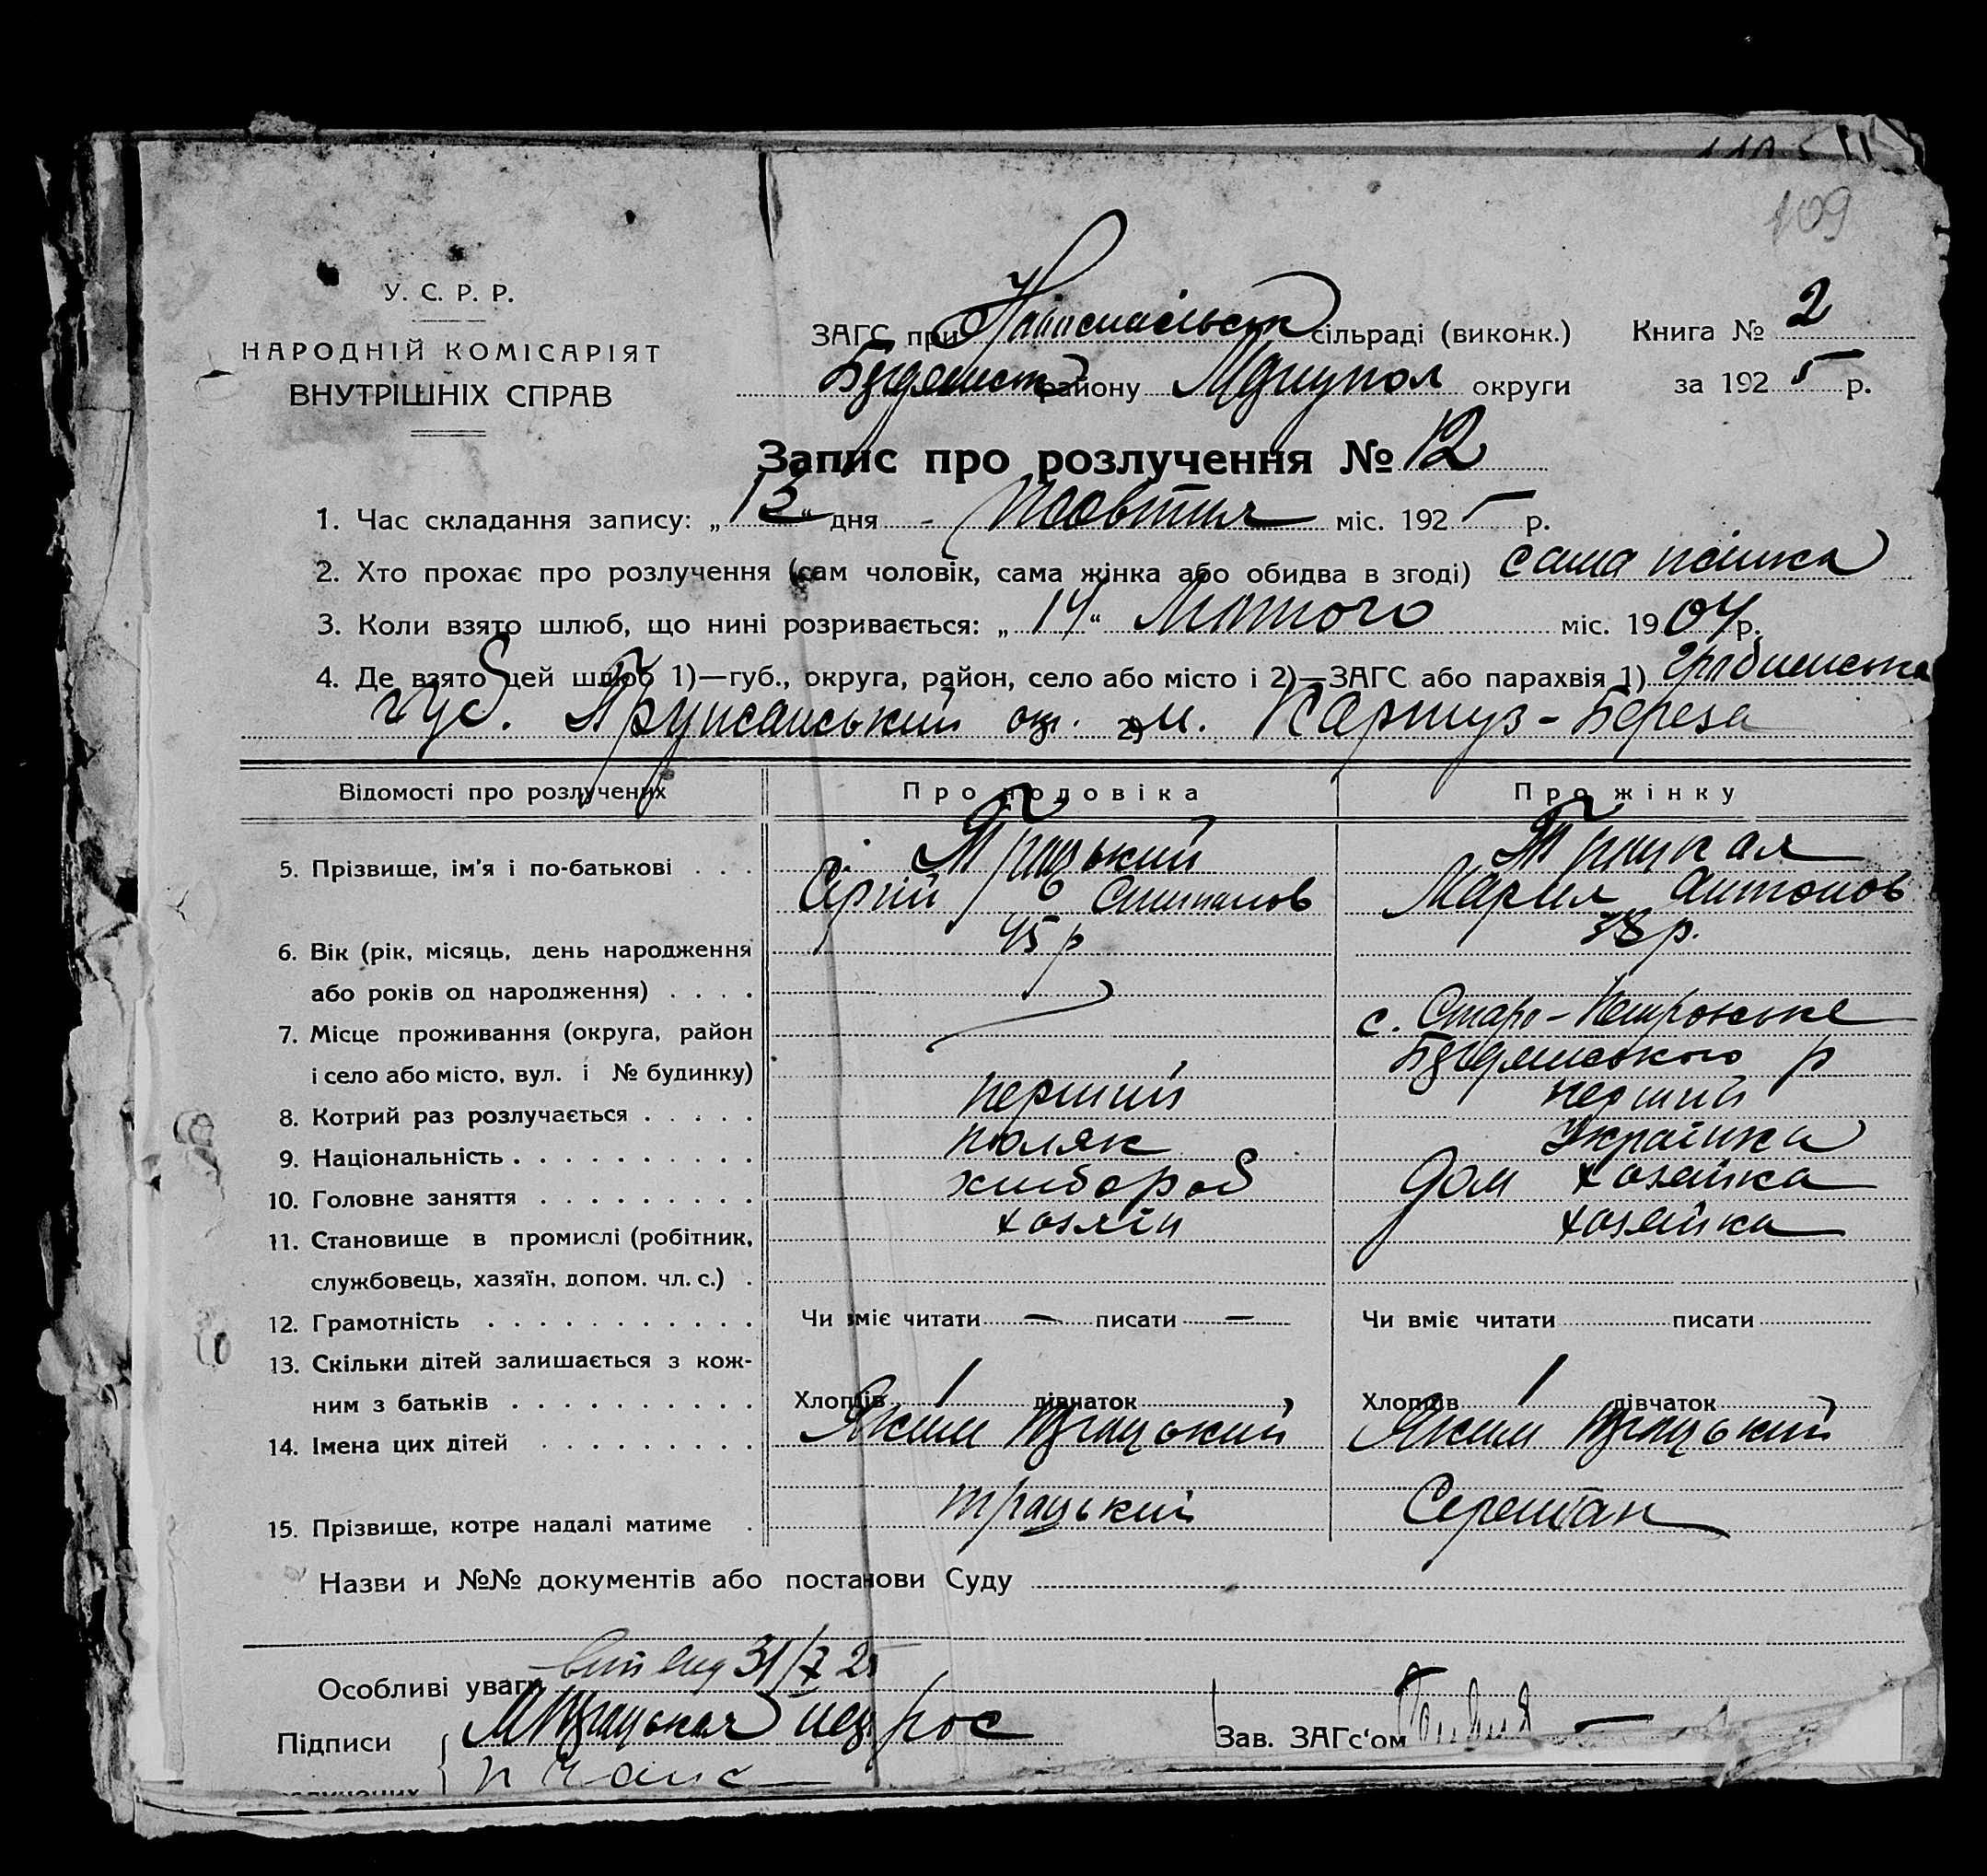 109
У. С. Р. Р.
НАРОДНІЙ КОМІСАРІЯТ
ВНУТРІШНІХ СПРАВ
ЗАГС при Новоспасівськ сільраді (виконк.) Книга № 2
району Маріупол округи за 192 5 р.
Запис про розлучення № 12
1. Час складання запису: „ 13 " дня - Жовтня міс. 192 5 р.
2. Хто прохає про розлучення (сам чоловік, сама жінка або обидва в згоді) сама жінка
3. Коли взято шлюб, що нині розривається: „ 14 " Лютого міс. 19 04 р.
4. Де взято цей шлюб 1)—губ., округа, район, село або місто і 2)—ЗАГС або парахвія 1)
губ. Пружанський окр. 2) м. Картуз-Береза
Відомості про розлучених Про чоловіка Про жінку
5. Прізвище, ім'я і по-батькові . . . Трацький Трацкая
Сергій Степанов Мария Антонов
6. Вік (рік, місяць, день народження 45 р 38 р.
або років од народження) . . . .
7. Місце проживання (округа, район с. Старо-Петровське
і село або місто, вул. і № будинку) р
8. Котрий раз розлучається . . . . . перший перший
9. Національність . . . . . . . . . . поляк Українка
10. Головне заняття . . . . . . . . . хлібороб Дом хозяйка
11. Становище в промислі (робітник, хозяін хозяйка
службовець, хазяїн, допом. чл. с.) .
12. Грамотність . . . . . . . . . . . Чи вміє читати — писати — Чи вміє читати писати
13. Скільки дітей залишається з кож-
ним з батьків . . . . . . . . . . Хлопців 1 дівчаток Хлопців 1 дівчаток
14. Імена цих дітей . . . . . . . . . Яким Трацький Яким Трацький
15. Прізвище, котре надалі матиме . Трацький Серештан
Назви и №№ документів або постанови Суду
Особливі уваги 31/7 25
Підписи М Трацькая Зав. ЗАГс'ом